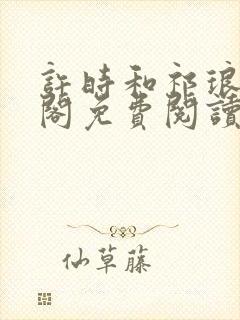 許時和祁琅
閣免費閱讀
仙草藤